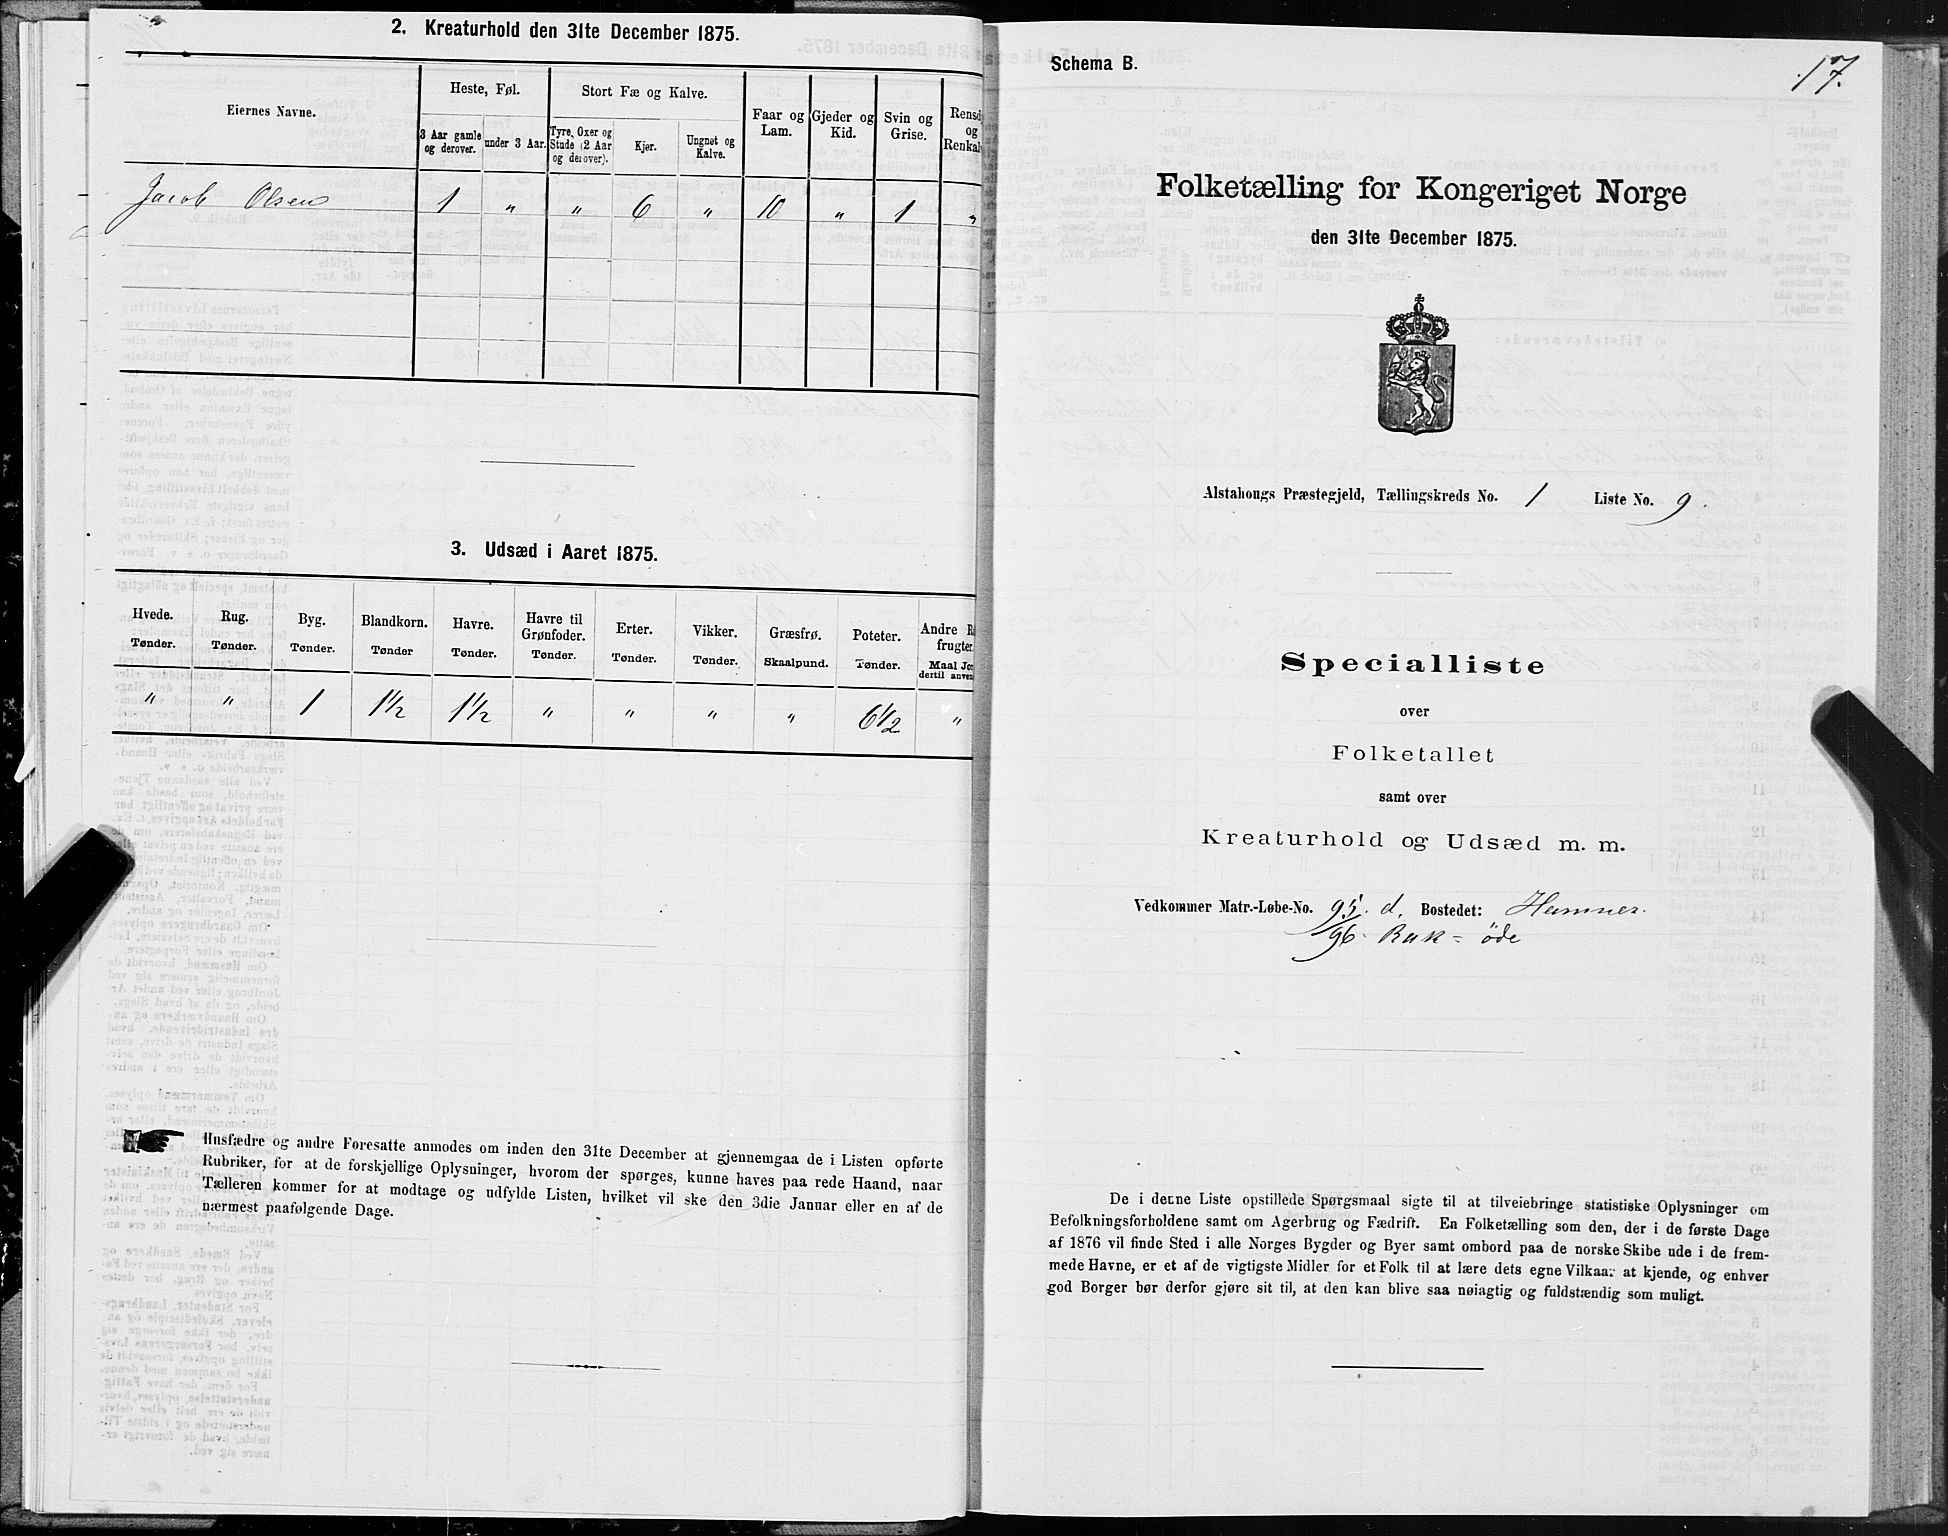 2. Kreaturhold den 31te December 1875.
Eiernes Navne.
Heste, Føl.
Stort Fæ og Kalve.
Faar og Lam.
Gjeder og Kid.
Svin og Grise.
Rensd
og
Renkal
3 Aar gamle og derover.
under 3 Aar.
Tyre, Oxer og Stude (2 Aar og derover).
Kjer.
Ungnet og Kalve.
Jacob Olsen 1 " " 6 " 10 " 1 "
3. Udsæd i Aaret 1875.
Hvede. Rug. Byg. Blandkorn. Havre. Havre til Grønfoder. Erter. Vikker. Græsfrø. Poteter. Andre R
frugter.
Tønder. Tønder. Tønder. Tønder Tønder. Tønder. Tønder. Tønder. Skaalpund. Tønder. Maal Jor
dertil anven
" " 1 1½ 1½ " " " " 6½ "
Husfædre og andre Foresatte anmodes om inden den 31te December at gjennemgaa de i Listen opførte
Rubriker, for at de forskjellige Oplysninger, hvorom der spørges, kunne haves paa rede Haand, naar
Tælleren kommer for at modtage og udfylde Listen, hvilket vil ske den 3die Januar eller en af de
nærmest paafølgende Dage.
Schema B.
17.
Folketælling for Kongeriget Norge
den 31te December 1875.
Alstahougs Præstegjeld, Tællingskreds No. 1 Liste No. 9.
Specialliste
over
Folketallet
samt over
Kreaturhold og Udsæd m. m.
Vedkommer Matr.-Løbe-No. 95. d. Bostedet: Hamnes.
96 - Rak = öde
De i denne Liste opstillede Spørgsmaal sigte til at tilveiebringe statistiske Oplysninger om
Befolkningsforholdene samt om Agerbrug og Fædrift. En Folketælling som den, der i de første Dage
af 1876 vil finde Sted i alle Norges Bygder og Byer samt ombord paa de norske Skibe ude i de frem-
mede Havne, er et af de vigtigste Midler for et Folk til at lære dets egne Vilkaar at kjende, og enhver
god Borger bør derfor gjøre sit til, at den kan blive saa nøiagtig og fuldstændig som muligt.